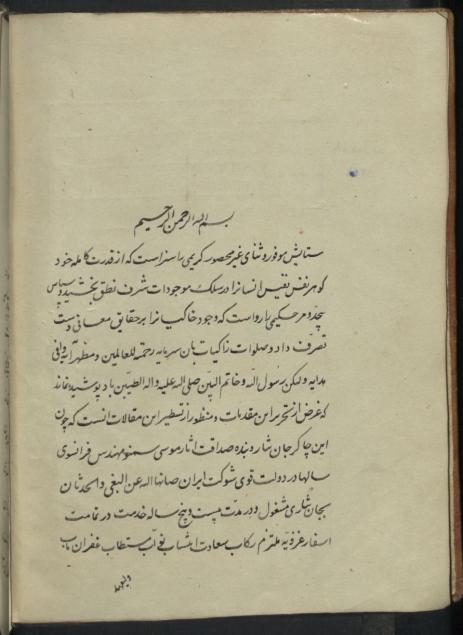 بسم الله الرحمن الرحیم
ستایش موفور و ثنای غیر محصور کریمی را سزاست که از قدرت کامله خود
کوهر نفس نفیس انسانرا در سلک موجودات شرف نطق بخشید و سپاس
بیحد مر حکیمی را رواست که وجود خاکیانرا بر حقایق معانی دست
تصرف داد و صلوات زاکیات بان سرمایه رحمة للعالمین و مظهر آیه وافی
هدایه ولکن رسول الله و خاتم النبین صلی الله علیه و اله الطیبین باد پوشیده نماند
که غرض از تحریر این مقدمات و منظور از تسطیر این مقالات انست که چون
این چاکر جان نثار و بنده صداقت اثار موسی سمنو مهندس فرانسوی
سالها در دولت قوی شوکت ایران صانها الله عن البغی و الحدثان
بجان نثاری مشغول و در مدت بیست و پنج ساله خدمت در تمامت
اسفار غزویه ملتزم رکاب سعادت انتساب نواب مستطاب غفران ماب